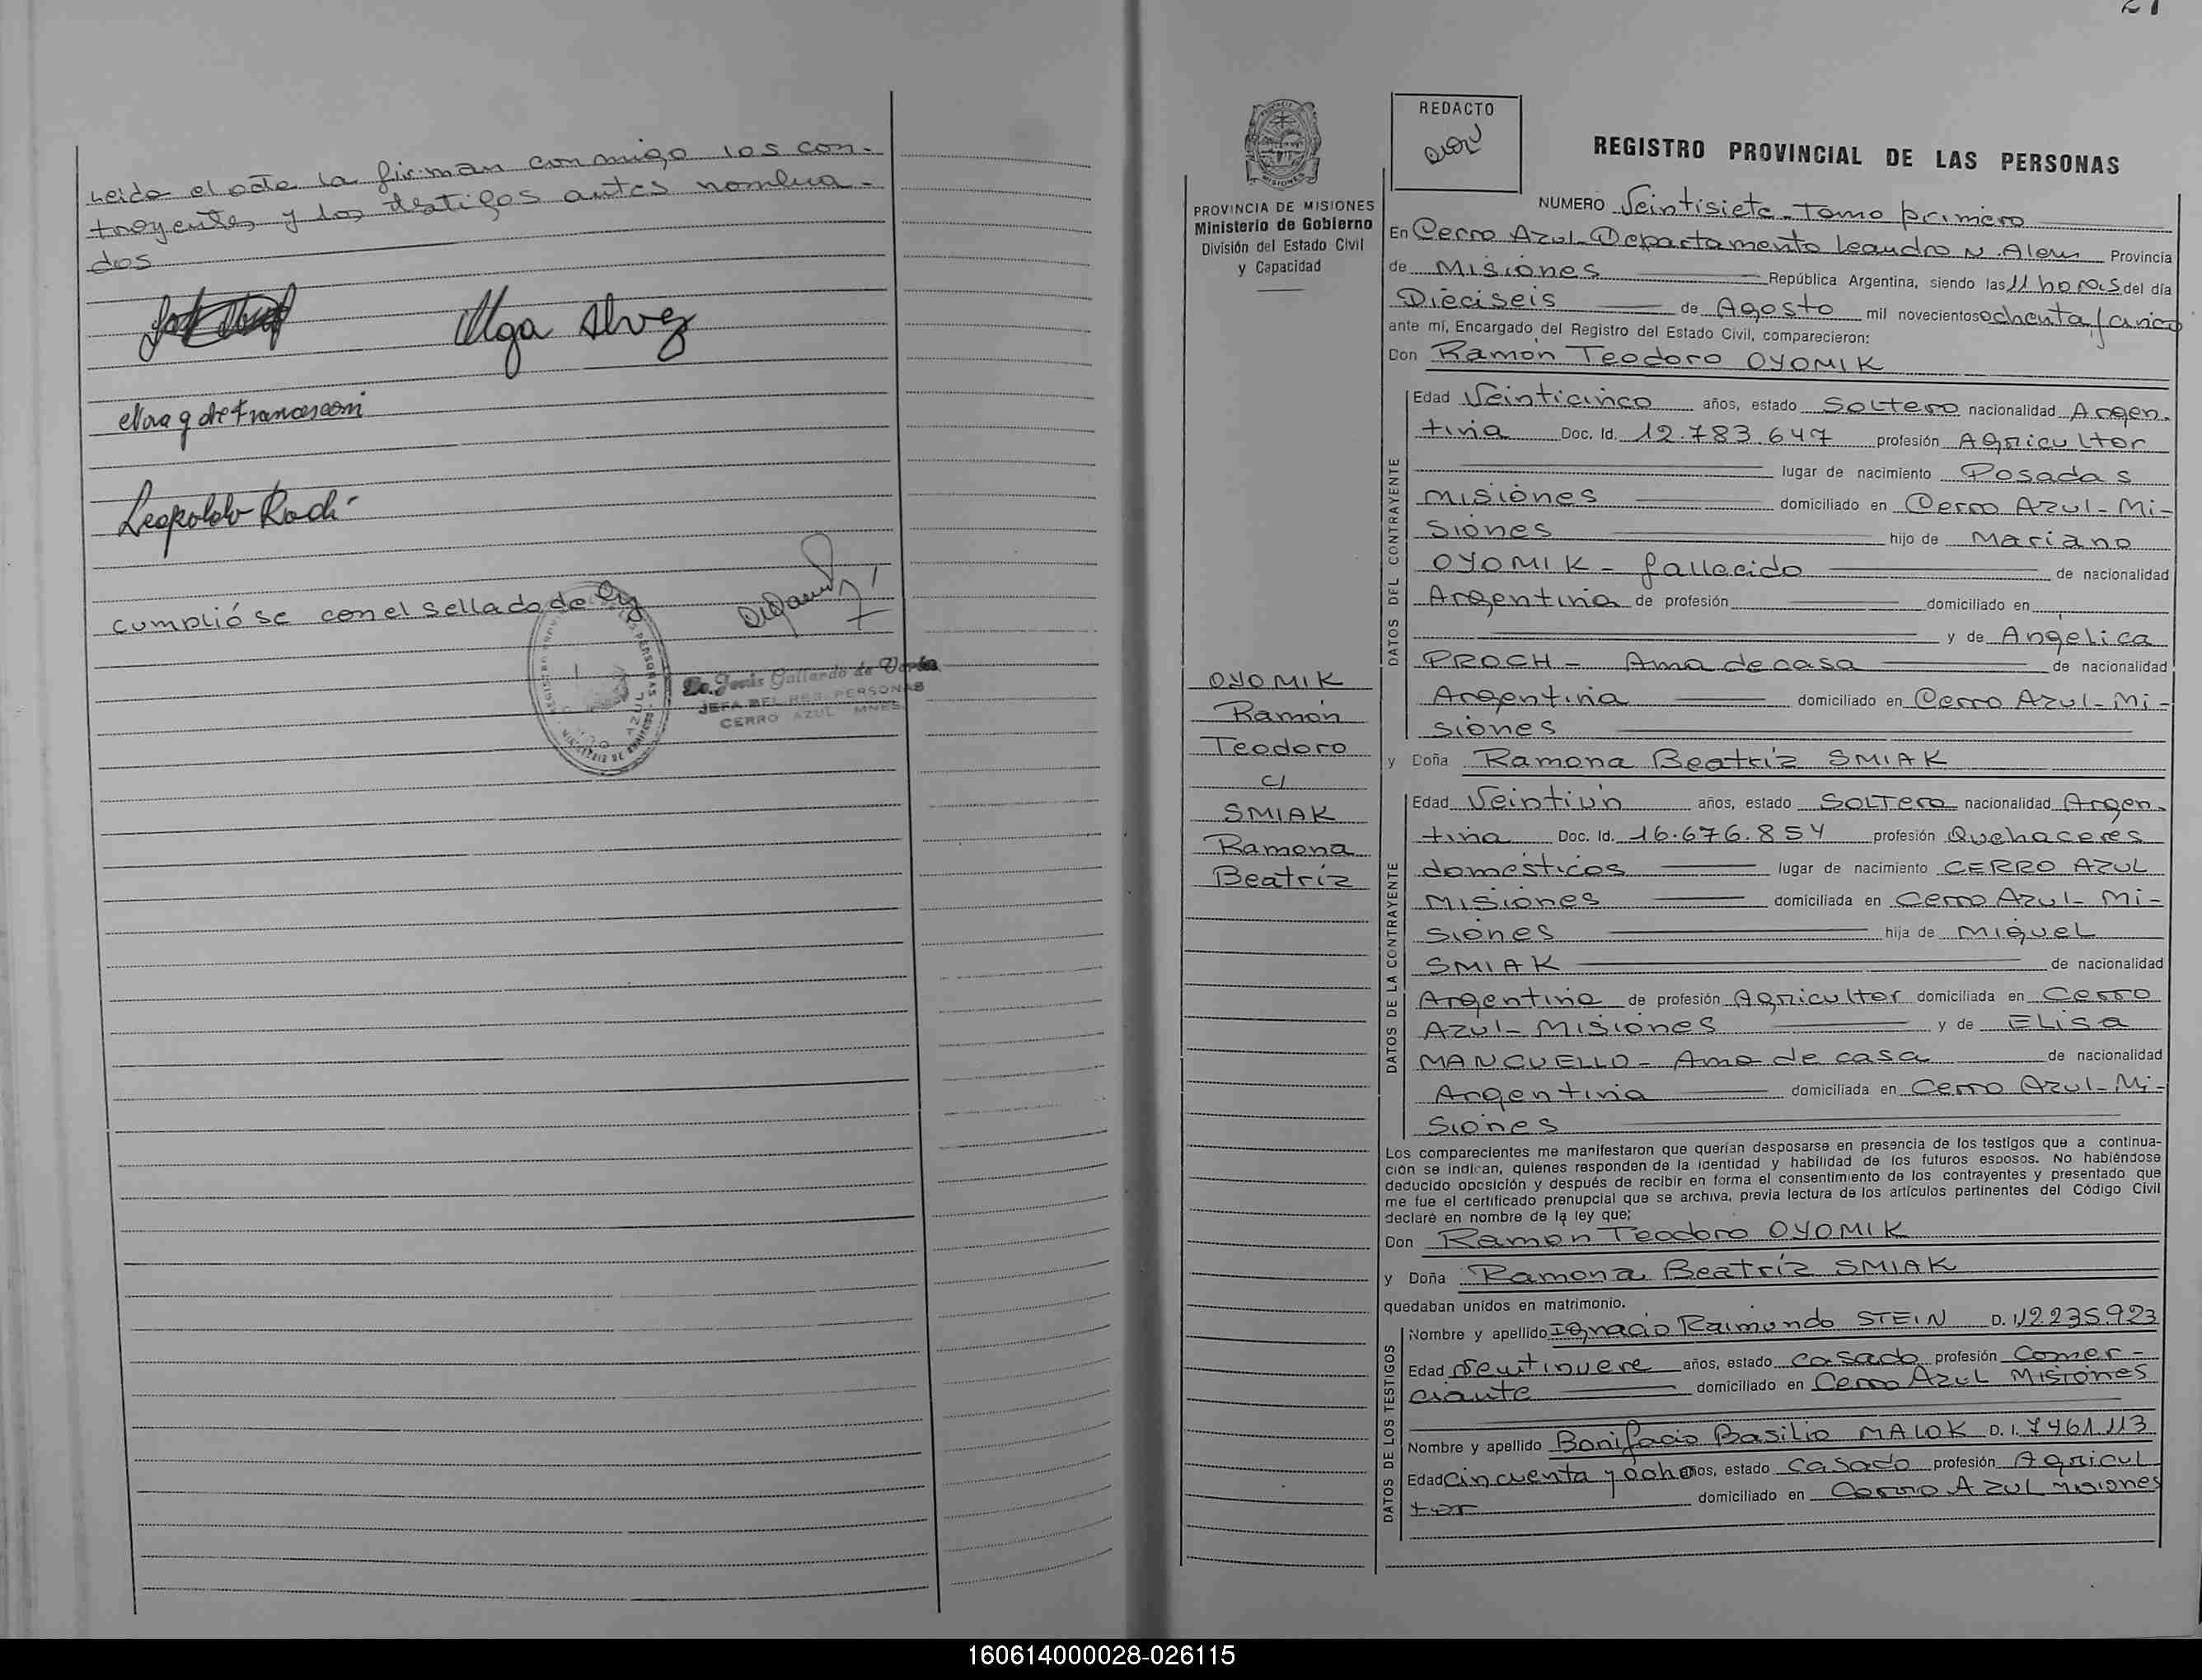 Leido el acta la firman conmigo los con-
trayentes y los testigos antes nombra-
dos
Olga Alvez
elva g de Francesconi
Leopoldo Rodi
Cumplió se con el sellado de ley
De. Jesús Gallardo de
JEFA DEL REG. PERSONAS
CERRO AZUL MNES
PROVINCIA DE MISIONES
Ministerio de Gobierno
División del Estado Civil
y Capacidad
OYOMIK
Ramón
Teodoro
C/
SMIAK
Ramona
Beatríz
REDACTO
REGISTRO PROVINCIAL DE LAS PERSONAS
NUMERO Veintisiete - Tomo primero
En Cerro Azul - Departamento Leandro N. Alem Provincia
de Misiones República Argentina, siendo las 11 horas del día
Dieciseis de Agosto mil novecientos ochenta y cinco
ante mí, Encargado del Registro del Estado Civil, comparecieron:
Don Ramón Teodoro OYOMIK
Edad Veinticinco años, estado Soltero nacionalidad Argen-
tina Doc. Id. 12.783.647 profesión Agricultor
lugar de nacimiento Posadas
Misiones domiciliado en Cerro Azul - Mi-
siones hijo de Mariano
OYOMIK - fallecido de nacionalidad
Argentina de profesión domiciliado en
y de Angélica
PROCH - Ama de casa de nacionalidad
Argentina domiciliado en Cerro Azul - Mi-
siones
y Doña Ramona Beatríz SMIAK
Edad Veintiún años, estado Soltera nacionalidad Argen-
tina Doc. Id. 16.676.854 profesión Quehaceres
domésticos lugar de nacimiento CERRO AZUL
Misiones domiciliada en Cerro Azul - Mi-
siones hija de Miguel
SMIAK de nacionalidad
Argentina de profesión Agricultor domiciliada en Cerro
Azul - Misiones y de Elisa
MANCUELLO - Ama de casa de nacionalidad
Argentina domiciliada en Cerro Azul - Mi-
siones
Los comparecientes me manifestaron que querían desposarse en presencia de los testigos que a continua-
ción se indican, quienes responden de la identidad y habilidad de los futuros esposos. No habiéndose
deducido oposición y después de recibir en forma el consentimiento de los contrayentes y presentado que
me fue el certificado prenupcial que se archiva, previa lectura de los artículos pertinentes del Código Civil
declaré en nombre de la ley que;
Don Ramon Teodoro OYOMIK
y Doña Ramona Beatríz SMIAK
quedaban unidos en matrimonio.
Nombre y apellido Ignacio Raimundo STEIN D. I. 12.235.923
Edad Veintinueve años, estado casado profesión Comer-
ciante domiciliado en Cerro Azul Misiones
Nombre y apellido Bonifacio Basilio MALOK D. I. 7461.113
Edad cincuenta y ocho años, estado casado profesión Agricul
tor domiciliado en Cerro Azul Misiones
DATOS DEL CONTRAYENTE
DATOS DE LA CONTRAYENTE
DATOS DE LOS TESTIGOS
160614000028-026115